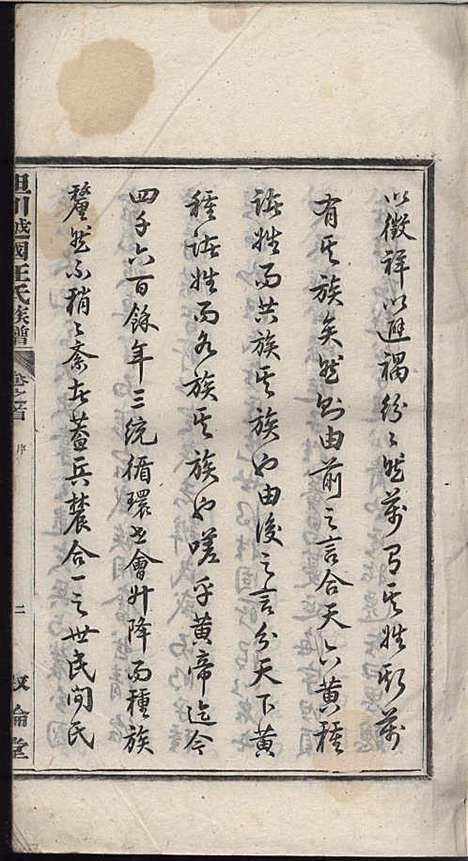 以徵祥以避禍紛紛然萬有其姓斯萬
有其族矣然則由前之言合天下黃種
諸姓而共族其族也由後之言分天下黃
種諸姓而各族其族也嗟乎黃帝迄今
四千六百餘年三統循環世會升降而種族
釐然不稍稍紊者蓋兵農合一之世民間氏
坦川越國汪氏族譜 卷之首 序 二 敘倫堂